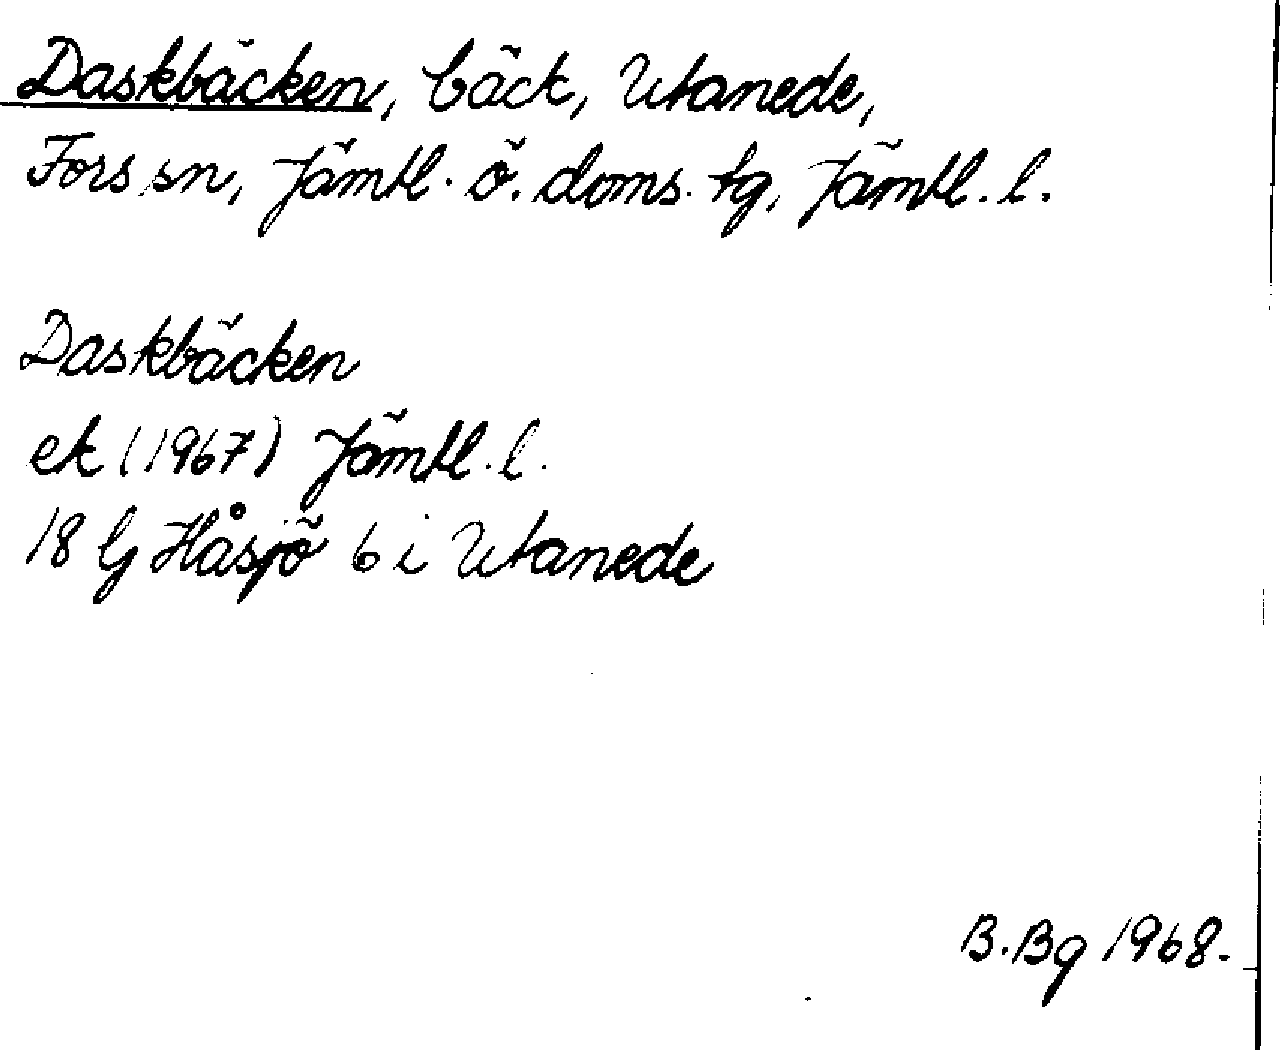 Daskbäcken, bäck, Utanede,
Fors sn, Jämtl. ö. doms. tg, Jämtl. l.
Daskbäcken
ek (1967) Jämtl. l.
18 G Håsjö 6 i Utanede
B. Bg 1968.